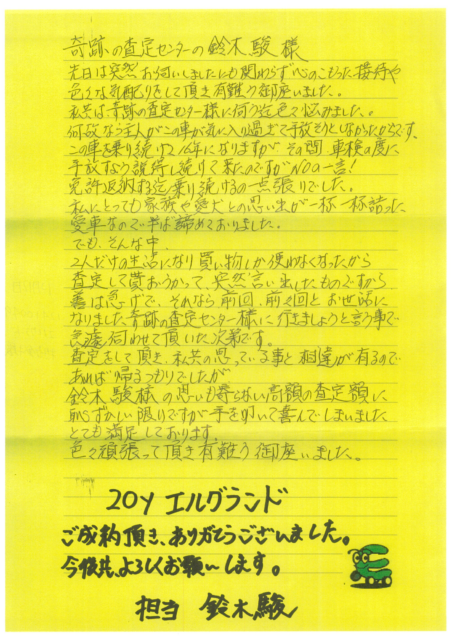 奇跡の査定センターの鈴木駿様
先日は突然お伺いしましたにも関わらず心のこもった接待や
色々な気配りをして頂き有難う御座いました。
私共は奇跡の査定センター様に伺う迄色々悩みました。
何故なら主人がこの車が気に入り過ぎて手放そうとしなかったからです。
この車を乗り続けて16年になりますがその間、車検の度に
手放すよう説得し続けて来たのですがNOの一言!
免許返納する迄乗り続けるの一点張りでした。
私にとっても家族や愛犬との思い出が一杯一杯詰った
愛車なので半ば諦めておりました。
でも、そんな中、
2人だけの生活になり買い物しか使わなくなったから
査定して貰おうかって、突然言い出したものですから
善は急げで、それなら前回、前々回とお世話に
なりました奇跡の査定センター様に行きましょうと言う事で
急遽、伺わせて頂いた次第です。
査定をして頂き、私共の思っている事と相違が有るので
あれば帰るつもりでしたが
鈴木駿様の思いも寄らない高額の査定額に
恥ずかしい限りですが手を叩いて喜んでしまいました
とても満足しております。
色々頑張って頂き有難う御座いました。
20y エルグランド
ご成約頂き、ありがとうございました。
今後共、よろしくお願いします。
担当 鈴木駿